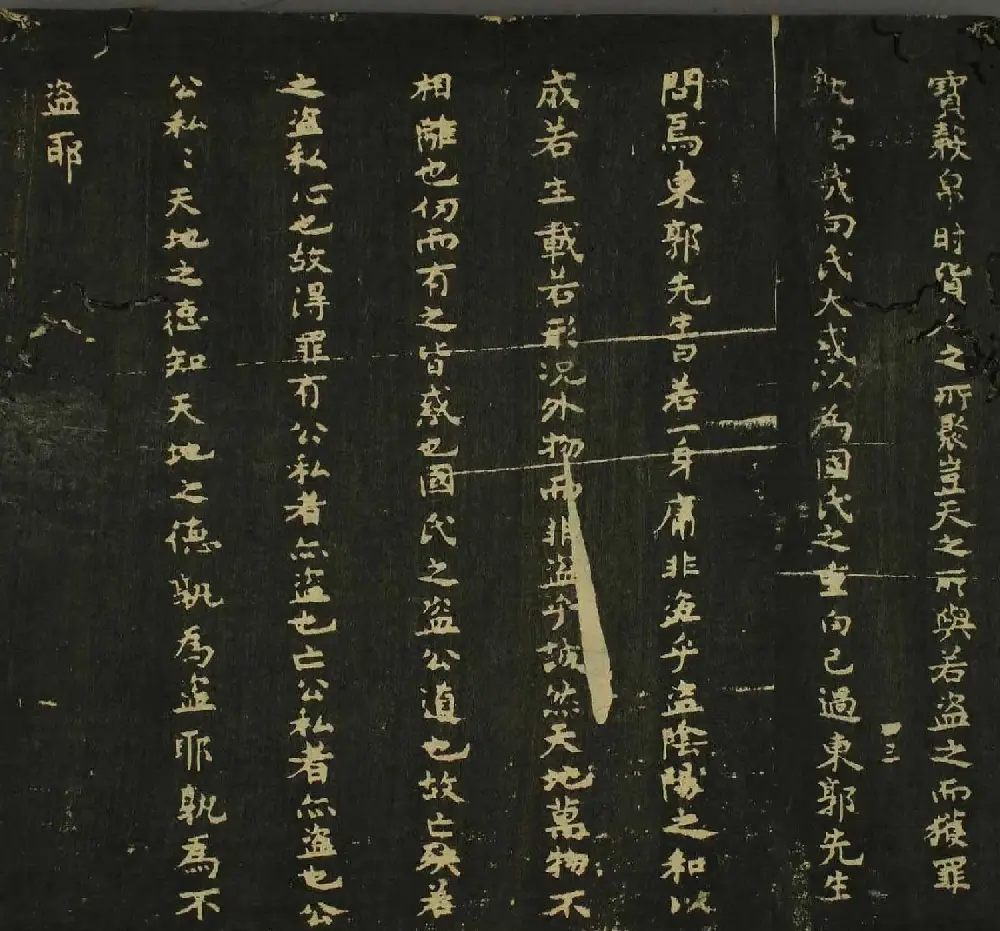 寶穀帛財貨人之所聚豈天之所與若盜之而獲罪
孰怨哉向氏大惑以為國氏之重罔已過東郭先生
問焉東郭先生曰若一身庸非盜乎盜陰陽之和以
成若生載若形況外物而非盜乎誠然天地萬物不
相離也仞而有之皆惑也國氏之盜公道也故亡殃若
之盜私心也故得罪有公私者亦盜也亡公私者亦盜也公
公私〻天地之德知天地之德孰為盜耶孰為不
盜耶
三